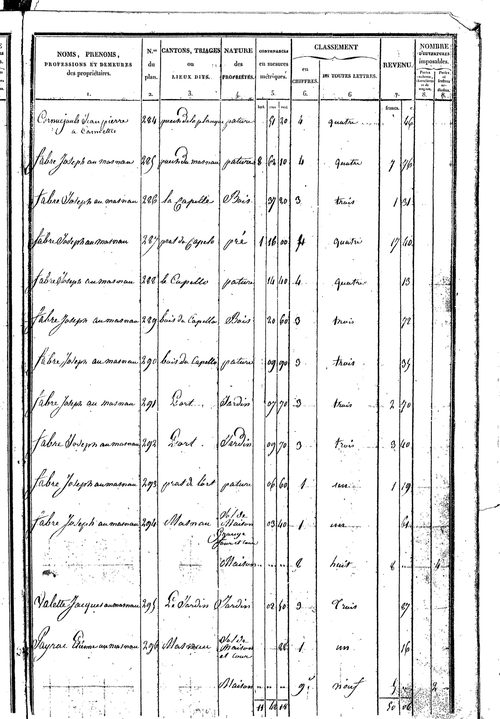 NOMS, PRENOMS, PROFESSIONS ET DEMEURES des propriétaires. 1.
N.os du plan. 2.
CANTONS, TRIAGES ou LIEUX DITS. 3.
NATURE des PROPRIÉTÉS. 4.
CONTENANCES en mesures métriques. 5.
CLASSEMENT
en CHIFFRES. 6.
en TOUTES LETTRES. 6
REVENU. 7.
NOMBRE D'OUVERTURES imposables.
8. 8.
francs. c.
284 pature 51 20 4 quatre 66
fabre Joseph au masnau 285 puech du masnau pature 8 62 10 4 quatre 7 76
fabre Joseph au masnau 286 la Capelle Bois 37 20 3 trois 1 31
fabre Joseph au masnau 287 prat du Capelo pré 1 16 00 4 quatre 17 40
fabre Joseph au masnau 288 le Capello pature 14 40 4 quatre 13
fabre Joseph au masnau 289 bois du Capello Bois 20 60 3 trois 72
fabre Joseph au masnau 290 bois du Capello pature 09 90 3 trois 35
fabre Joseph au masnau 291 L'ort Jardin 07 70 3 trois 2 70
fabre Joseph au masnau 292 L'ort Jardin 09 70 3 trois 3 40
fabre Joseph au masnau 293 prat de l'ort pature 06 60 1 un 1 19
fabre Joseph au masnau 294 Masnau Sol de Maison Grange four et cour 03 40 1 un 61
Maison 8 huit 8 4
Valette Jacques au masnau 295 Le Jardin Jardin 02 50 3 Trois 87
Payrac Etienne au masnau 296 Masnau Sol de Maison et cour 88 1 un 16
Maison 9 neuf 5 2
11 50 06